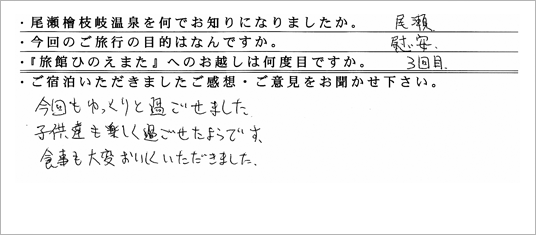 ・尾瀬檜枝岐温泉を何でお知りになりましたか。 尾瀬
・今回のご旅行の目的はなんですか。 慰安.
・『旅館ひのえまた』へのお越しは何度目ですか。 3回目.
・ご宿泊いただきましたご感想・ご意見をお聞かせ下さい。
今回もゆっくりと過ごせました.
子供達も楽しく過ごせたようです.
食事も大変おいしくいただきました.